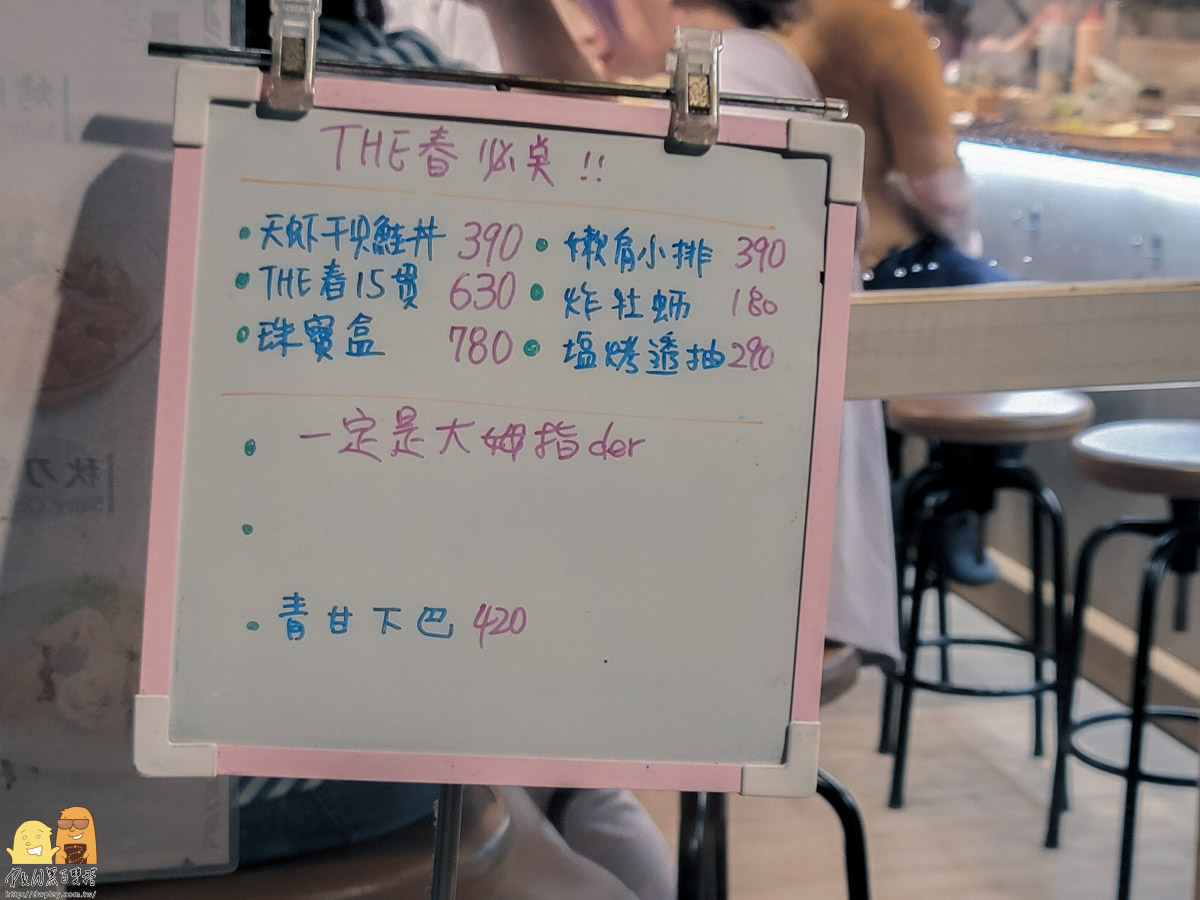 THE春必桌!!
天虾干貝鮭丼 390
THE春15貫 630
珠寶盒 780
嫩肩小排 390
炸牡蛎 180
塩烤透抽 290
一定是大姆指der
青甘下巴 420
秋刀
http://dwplay.com.tw/